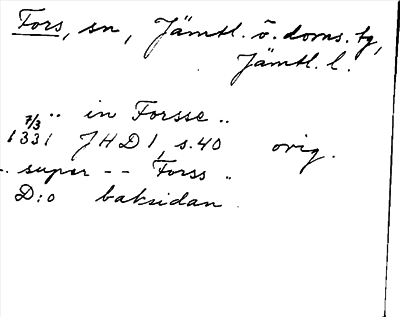 Fors, sn, Jämtl. ö. doms. tg,
Jämtl. l.
·· in Forsse ··
7/3
1331 JHD 1, s. 40 orig.
·· super -- Forss ··
D:o baksidan